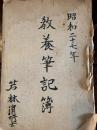 昭和二十七年
教養筆記簿
若林